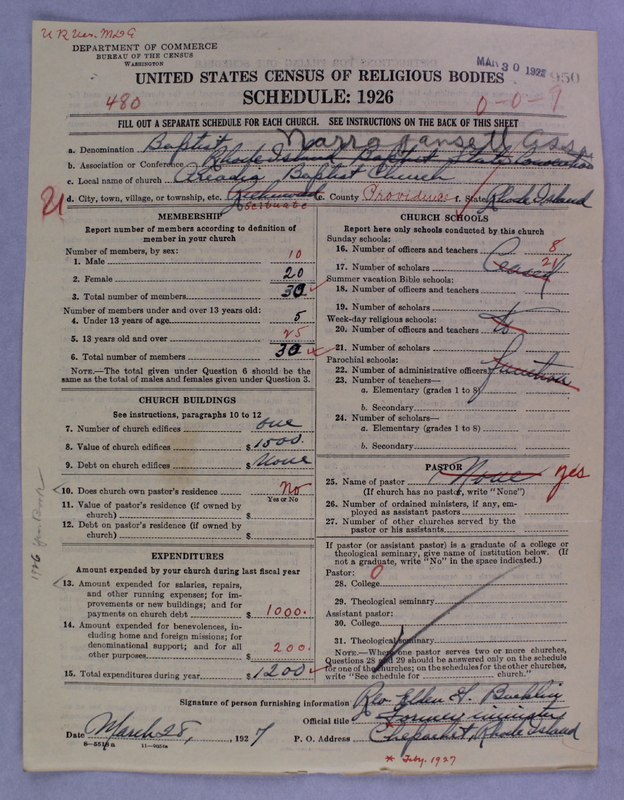 U R Ues. M&G
DEPARTMENT OF COMMERCE
BUREAU OF THE CENSUS
WASHINGTON
MAR 30 1927 950
UNITED STATES CENSUS OF RELIGIOUS BODIES
SCHEDULE: 1926
480
0-0-9
FILL OUT A SEPARATE SCHEDULE FOR EACH CHURCH. SEE INSTRUCTIONS ON THE BACK OF THIS SHEET
a. Denomination Baptist Narragansett Assn.
b. Association or Conference Rhode Island Baptist State Convention
c. Local name of church Arcadia Baptist Church
d. City, town, village, or township, etc. Richmond e. County Providence f. State Rhode Island
Scituate
MEMBERSHIP
Report number of members according to definition of
member in your church
Number of members, by sex:
1. Male 10
2. Female 20
3. Total number of members 30
Number of members under and over 13 years old:
4. Under 13 years of age 5
5. 13 years old and over 25
6. Total number of members 30
NOTE.—The total given under Question 6 should be
same as the total of males and females given under Question 3.
CHURCH BUILDINGS
See instructions, paragraphs 10 to 12
7. Number of church edifices one
8. Value of church edifices $ 1500.
9. Debt on church edifices $ None
10. Does church own pastor's residence No
Yes or No
11. Value of pastor's residence (if owned by
church) $
12. Debt on pastor's residence (if owned by
church) $
1926 Year Book
EXPENDITURES
Amount expended by your church during last fiscal year
13. Amount expended for salaries, repairs,
and other running expenses; for im-
provements or new buildings; and for
payments on church debt $ 1000.
14. Amount expended for benevolences, in-
cluding home and foreign missions; for
denominational support; and for all
other purposes $ 200.
15. Total expenditures during year $ 1200
CHURCH SCHOOLS
Report here only schools conducted by this church
Sunday schools:
16. Number of officers and teachers 8
17. Number of scholars Ceased 21
Summer vacation Bible schools:
18. Number of officers and teachers
19. Number of scholars
Week-day religious schools: to
20. Number of officers and teachers
21. Number of scholars
Parochial schools: function
22. Number of administrative officers
23. Number of teachers—
a. Elementary (grades 1 to 8)
b. Secondary
24. Number of scholars—
a. Elementary (grades 1 to 8)
b. Secondary
PASTOR
25. Name of pastor None yes
(If church has no pastor, write "None")
26. Number of ordained ministers, if any, em-
ployed as assistant pastors
27. Number of other churches served by the
pastor or his assistants
If pastor (or assistant pastor) is a graduate of a college or
theological seminary, give name of institution below. (If
not a graduate, write "No" in the space indicated.)
Pastor: 0
28. College
29. Theological seminary
Assistant pastor:
30. College
31. Theological seminary
NOTE.—When one pastor serves two or more churches,
Questions 28 and 29 should be answered only on the schedule
for one of the churches; on the schedules for the other churches,
write "See schedule for church."
Signature of person furnishing information Rev. Elden G. Bucklin
Official title Former minister
Date March 28, 1927 P. O. Address Chepachet, Rhode Island
8—5518a 11—9864a
* Feby. 1927